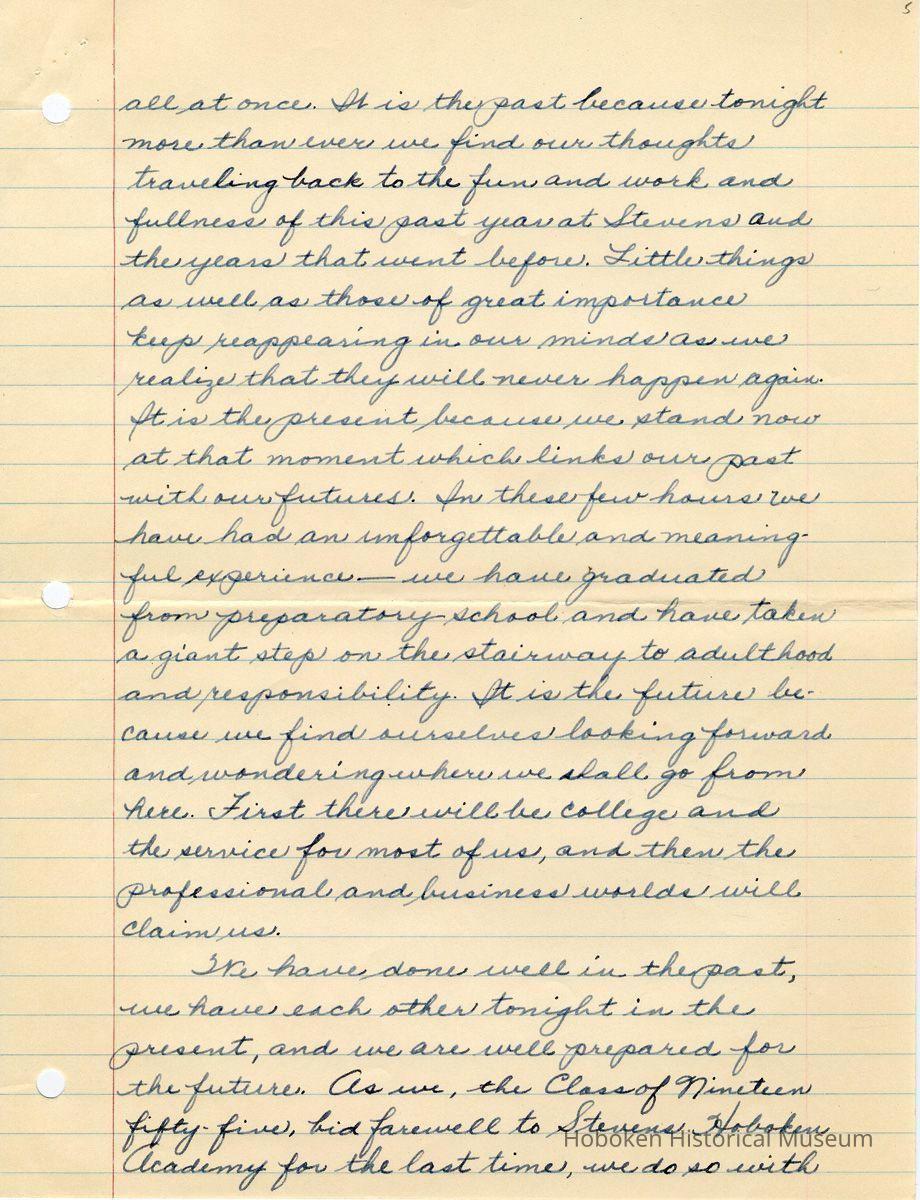 5
all at once. It is the past because tonight
more than ever we find our thoughts
traveling back to the fun and work and
fullness of this past year at Stevens and
the years that went before. Little things
as well as those of great importance
keep reappearing in our minds as we
realize that they will never happen again.
It is the present because we stand now
at that moment which links our past
with our futures. In these few hours we
have had an unforgettable and meaning-
ful experience — we have graduated
from preparatory school and have taken
a giant step on the stairway to adulthood
and responsibility. It is the future be-
cause we find ourselves looking forward
and wondering where we shall go from
here. First there will be college and
the service for most of us, and then the
professional and business worlds will
claim us.
We have done well in the past,
we have each other tonight in the
present, and we are well prepared for
the future. As we, the Class of Nineteen
fifty-five, bid farewell to Stevens Hoboken
Academy for the last time, we do so with
Hoboken Historical Museum